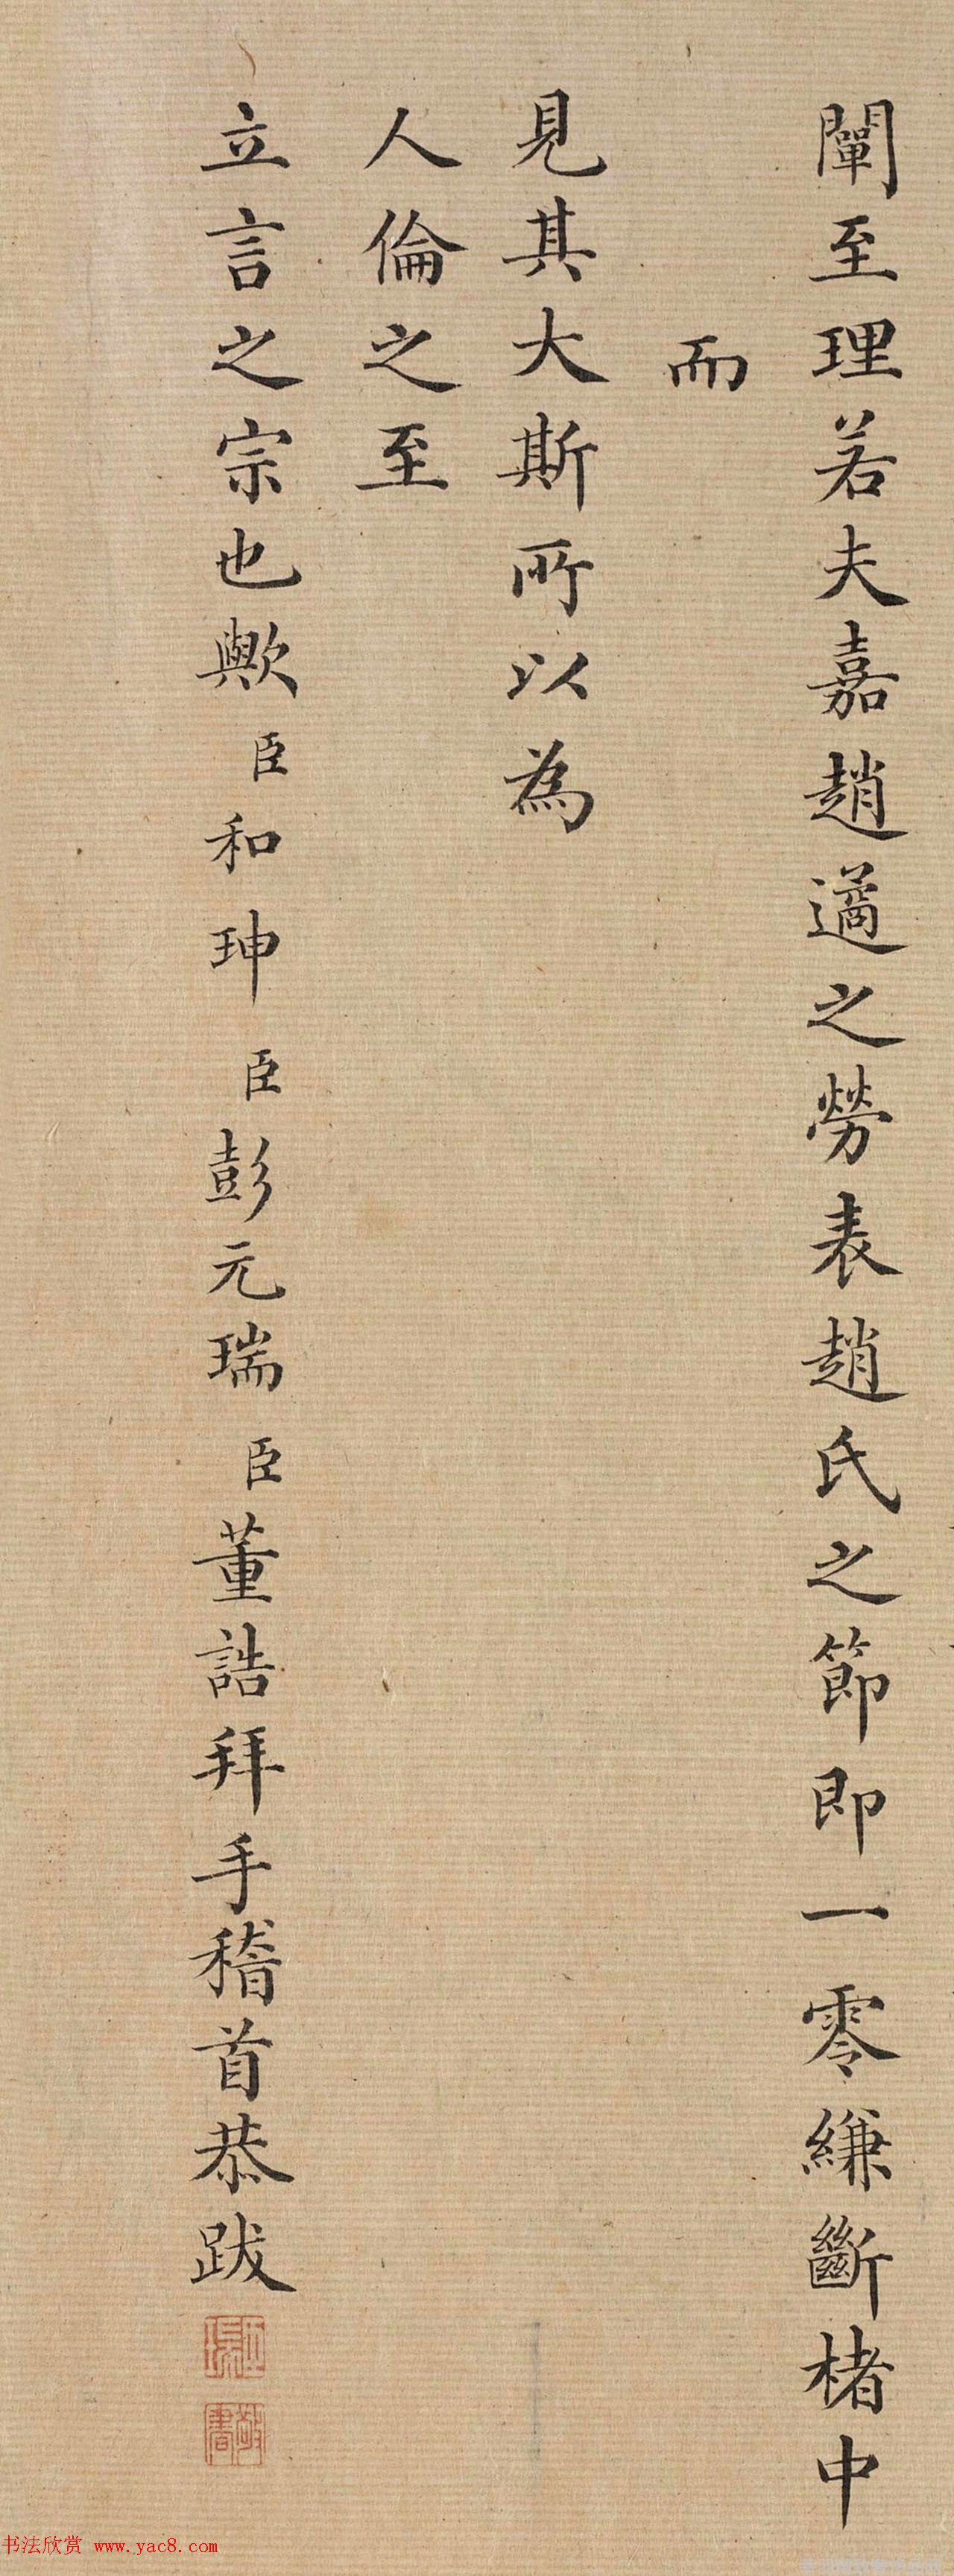 闡至理若夫嘉趙薖之勞表趙氏之節即一零縑斷楮中
而
見其大斯所以為
人倫之至
立言之宗也歟臣和珅臣彭元瑞臣董誥拜手稽首恭跋
书法欣赏 www.yac8.com